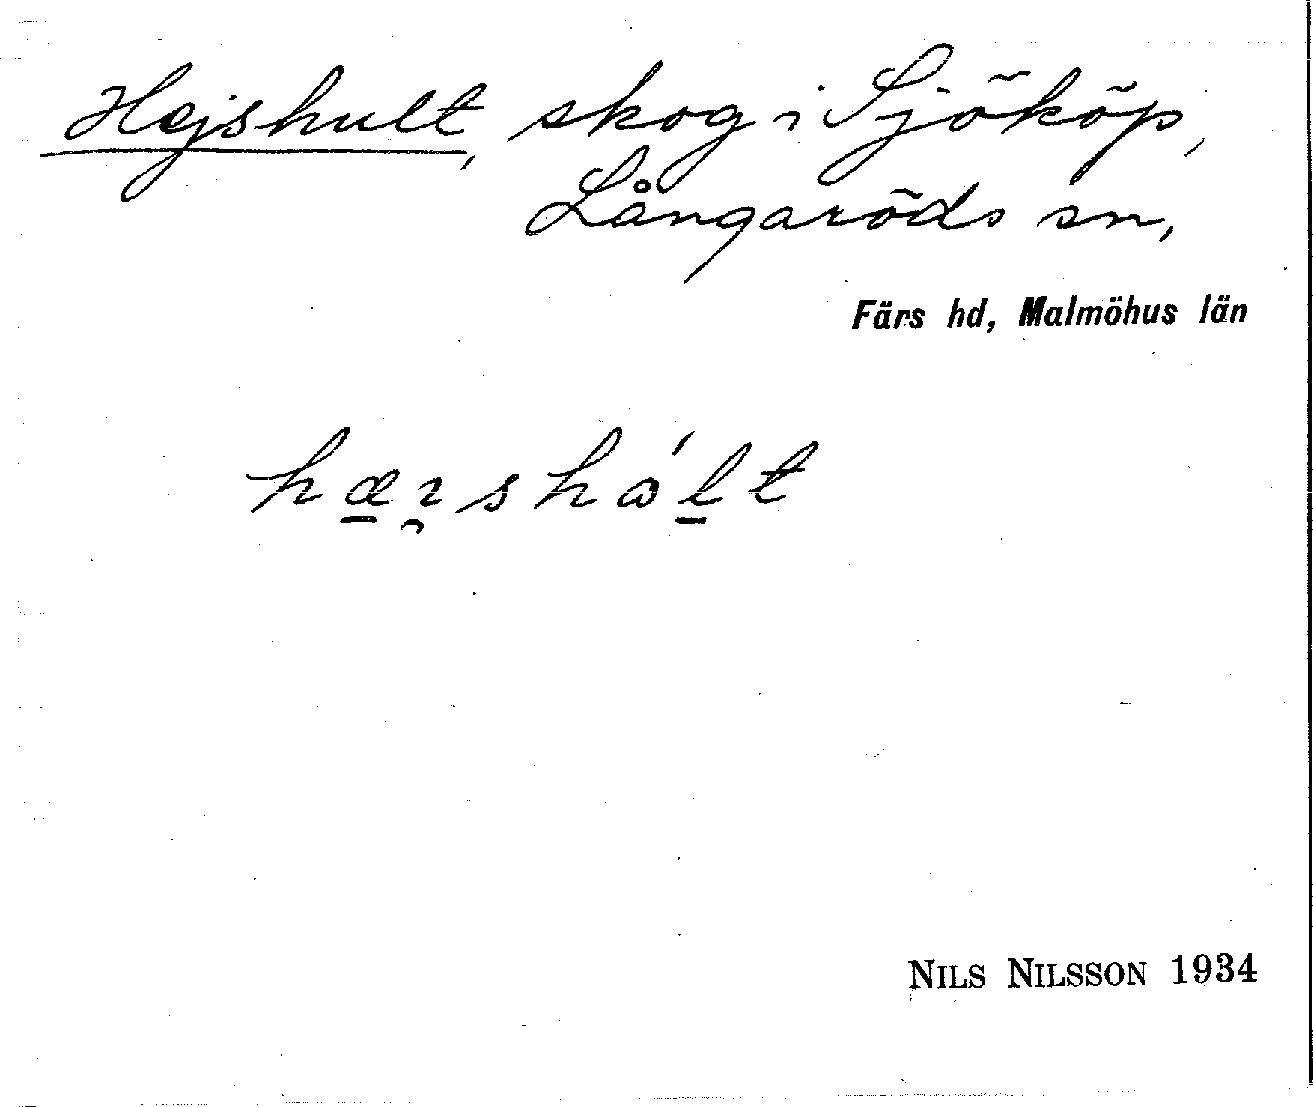 Hejshult, skog i Sjököp,
Långaröds sn,
Färs hd, Malmöhus län
NILS NILSSON 1934